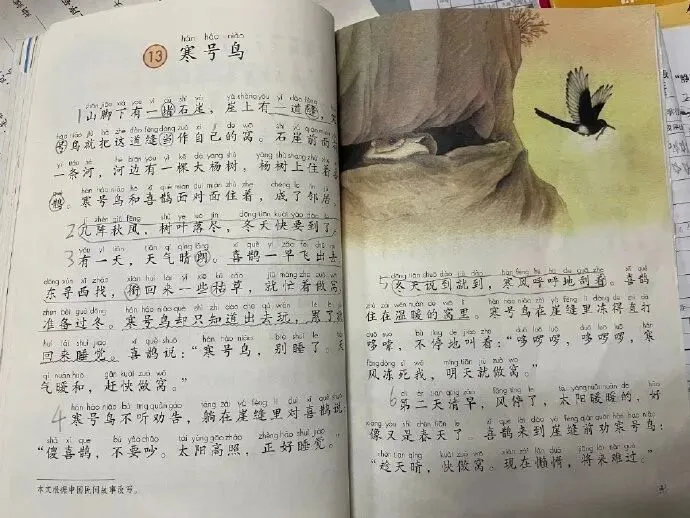 13 寒号鸟
1山脚下有一堵石崖，崖上有一道缝，
号鸟就把这道缝当作自己的窝。石崖前面
一条河，河边有一棵大杨树，杨树上住着
鹊。寒号鸟和喜鹊面对面住着，成了邻居
2几阵秋风，树叶落尽，冬天快要到了
3有一天，天气晴朗。喜鹊一早飞出去
东寻西找，衔回来一些枯草，就忙着做窝
准备过冬。寒号鸟却只知道出去玩，累了就
回来睡觉。喜鹊说：“寒号鸟，别睡了。天
气暖和，赶快做窝。”
4寒号鸟不听劝告，躺在崖缝里对喜鹊说
“傻喜鹊，不要吵。太阳高照，正好睡觉。”
本文根据中国民间故事改写。
5冬天说到就到，寒风呼呼地刮着。喜鹊
住在温暖的窝里。寒号鸟在崖缝里冻得直打
哆嗦，不停地叫着：“哆啰啰，哆啰啰，寒
风冻死我，明天就做窝。”
6第二天清早，风停了，太阳暖暖的，好
像又是春天了。喜鹊来到崖缝前劝寒号鸟：
“趁天晴，快做窝。现在懒惰，将来难过。”